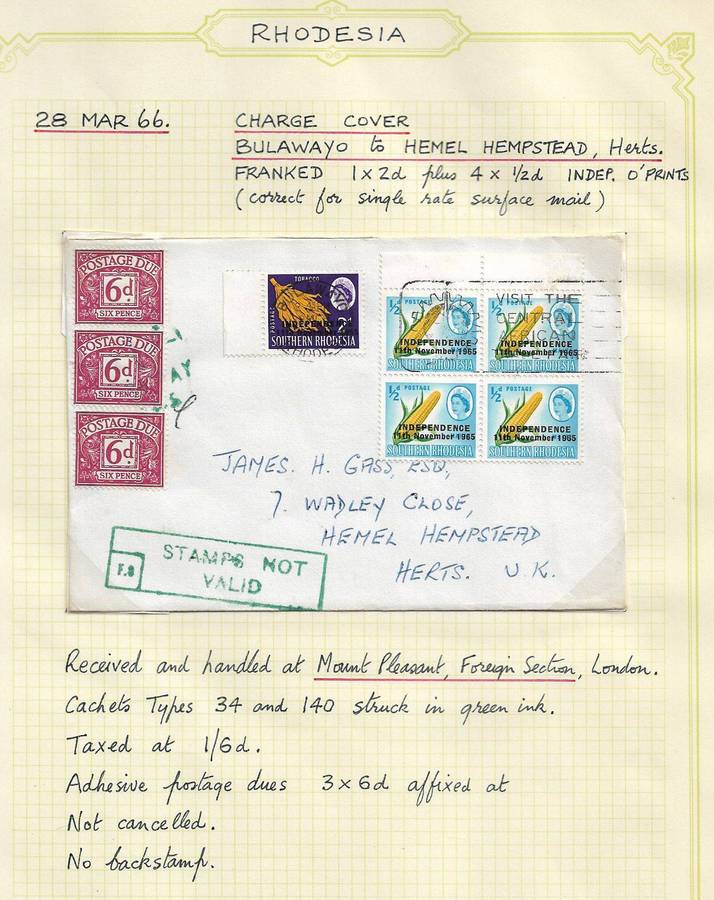 RHODESIA
28 MAR 66. CHARGE COVER
BULAWAYO to HEMEL HEMPSTEAD, Herts.
FRANKED 1 x 2d plus 4 x ½d INDEP. O'PRINTS
(correct for single rate surface mail)
POSTAGE DUE
6d.
SIX PENCE
POSTAGE DUE
6d.
SIX PENCE
POSTAGE DUE
6d.
SIX PENCE
TOBACCO
POSTAGE
SOUTHERN RHODESIA
½d POSTAGE
INDEPENDENCE
11th November 1965
SOUTHERN RHODESIA
½d POSTAGE
INDEPENDENCE
11th November 1965
SOUTHERN RHODESIA
½d POSTAGE
INDEPENDENCE
11th November 1965
SOUTHERN RHODESIA
½d POSTAGE
INDEPENDENCE
11th November 1965
SOUTHERN RHODESIA
VISIT THE
CENTRAL
JAMES. H. GASS, ESQ,
7. WADLEY CLOSE,
HEMEL HEMPSTEAD
HERTS. U.K.
STAMPS NOT
VALID
F.8
Received and handled at Mount Pleasant, Foreign Section, London.
Cachets Types 34 and 140 struck in green ink.
Taxed at 1/6d.
Adhesive postage dues 3 x 6d affixed at
Not cancelled.
No backstamp.